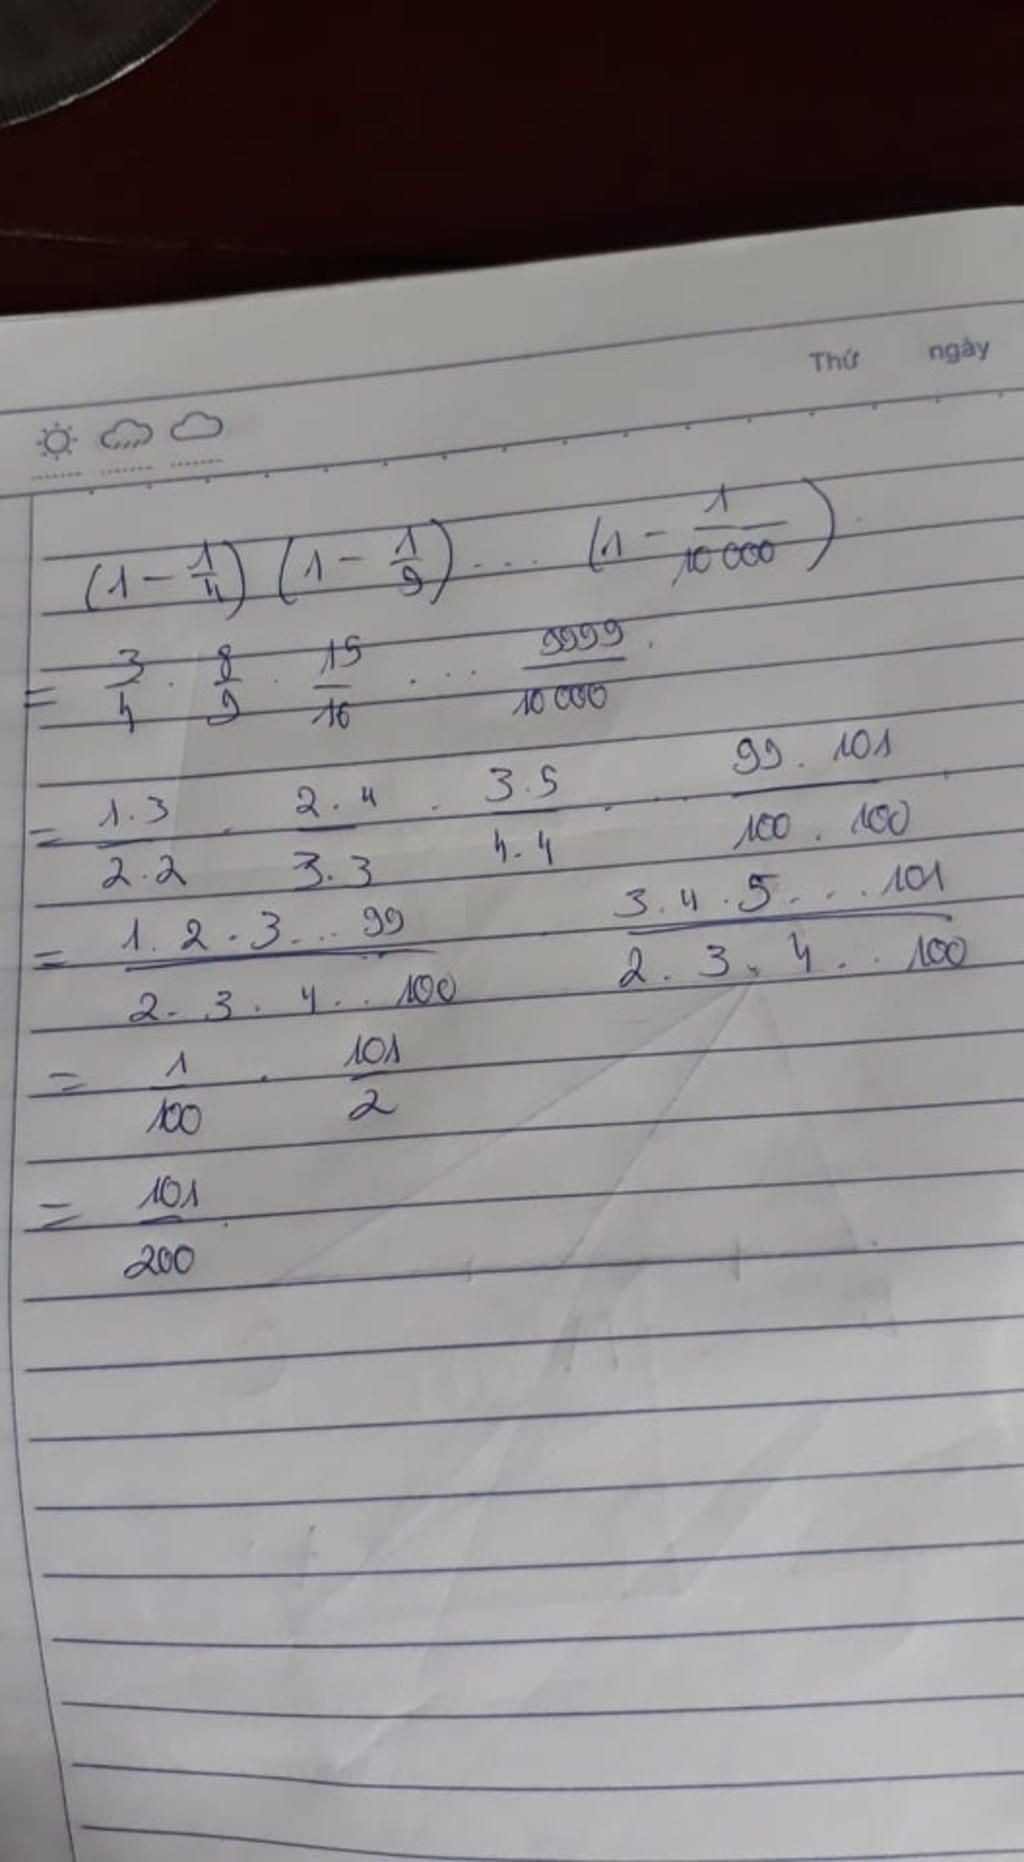 Thứ ngày
(1 - 1/4) (1 - 1/9) ... (1 - 1/10 000).
= 3/4 . 8/9 . 15/16 . ... 9999/10 000.
= 1.3/2.2 . 2.4/3.3 . 3.5/4.4 . ... 99.101/100.100
= 1.2.3...99/2.3.4...100 . 3.4.5...101/2.3.4...100
= 1/100 . 101/2
= 101/200.